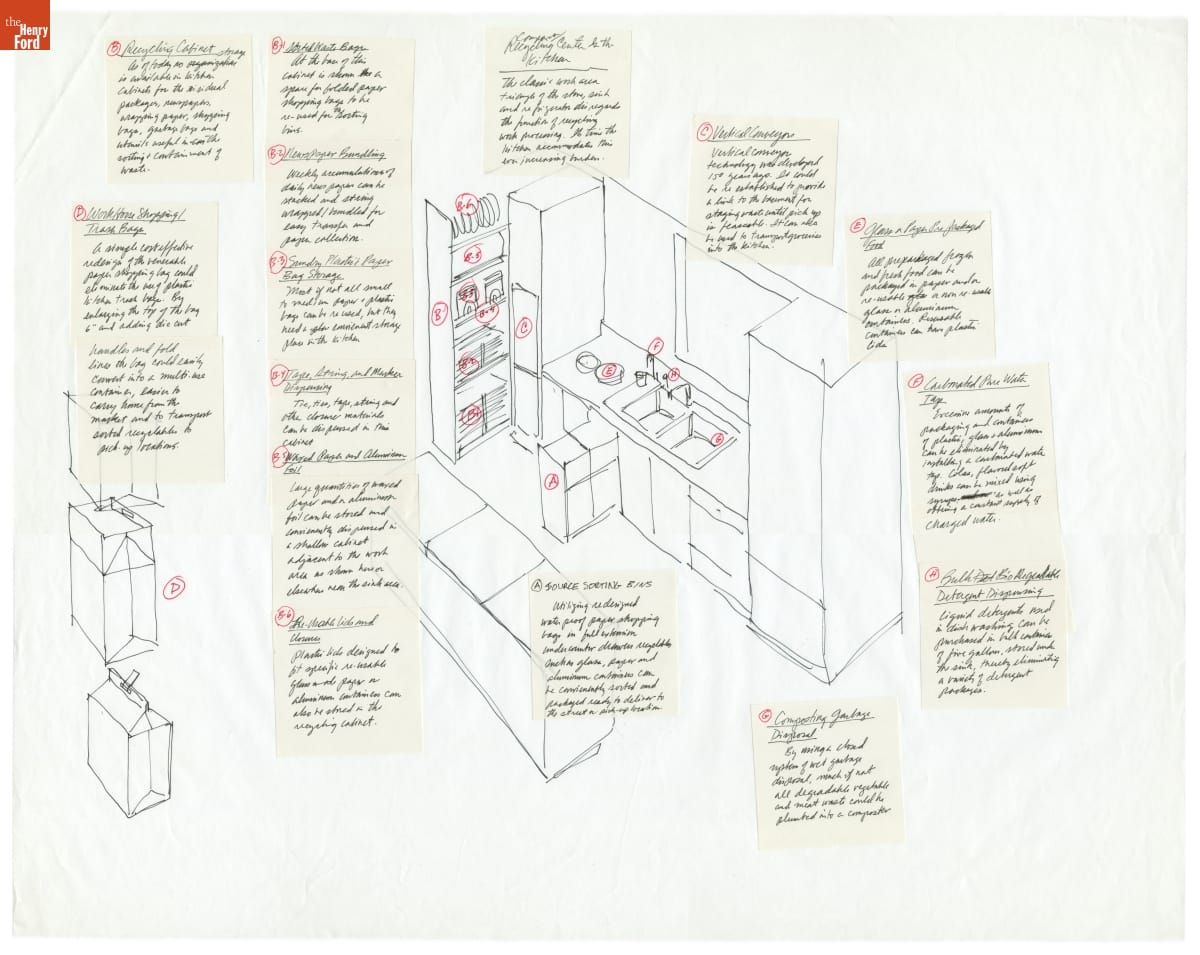 the
Henry
Ford
B Recycling Cabinet
As of today no organization storage
is available in kitchen
cabinets for the residual
packages, newspapers,
wrapping paper, shopping
bags, garbage bags and
utensils useful in the
sorting & containment of
waste.
B-1 Sorted Waste Bags
At the base of this
cabinet is shown the a
space for folded paper
shopping bags to be
re-used for the sorting
bins.
B-2 Newspaper Bundling
Weekly accumulations of
daily news paper can be
stacked and string
wrapped/bundled for
easy transfer and
paper collection.
B-3 Sundry Plastic & Paper
Bag Storage
Most if not all small
to medium paper & plastic
bags can be re used, but they
need a convenient storage
place in the kitchen
B-4 Tape, String, and Marker
Dispensing
Tie, ties, tape, string and
other closure materials
can be dispensed in this
cabinet
B-5 Waxed Paper and Aluminum
Foil
Large quantities of waxed
paper and or aluminum
foil can be stored and
conveniently dispensed in
a shallow cabinet
adjacent to the work
area as shown here or
elsewhere near the sink area.
B-6 Re-Usable lids and
closures
Plastic lids designed to
fit specific re-usable
glass and paper or
aluminum containers can
also be stored in the
recycling cabinet.
Compact
Recycling Center In the
Kitchen
The classic work area
triangle of the stove, sink
and refrigerator disregards
the function of recycling
work processing. Its time the
kitchen accommodates this
ever increasing burden.
C Vertical Conveyors
Vertical conveyor
technology was developed
150 years ago. It could
be re established to provide
a link to the basement for
staging waste until pick up
is feasable. It can also
be used to transport groceries
into the kitchen.
D Work Horse Shopping/
Trash Bags
A simple cost effective
redesign of the venerable
paper shopping bag could
eliminate the use of plastic
kitchen trash bags. By
enlarging the top of the bag
6" and adding die cut
handles and fold
lines the bag could easily
convert into a multi-use
container, easier to
carry home from the
market and to transport
sorted recyclables to
pick-up locations.
E Glass or Paper Pre Packaged
Food
All prepackaged frozen
and fresh food can be
packaged in paper and or
re-usable or non re-usable
glass or aluminum
containers. Reuseable
containers can have plastic
lids
F Carbonated Pure Water
Taps
Excessive amounts of
packaging and containers
of plastic, glass & aluminum
can be eliminated by
installing a carbonated water
tap. Colas, flavored soft
drinks can be mixed using
syrups as well as
obtaining a constant supply of
charged water.
H Bulk Bio Degradable
Detergent Dispensing
Liquid detergents used
in dish washing can be
purchased in bulk containers
of five gallons, stored under
the sink, thereby eliminating
a variety of detergent
packages.
A SOURCE SORTING BINS
Utilizing redesigned
water proof paper shopping
bags in full extension
undercounter drawers recyclables
such as glass, paper and
aluminum containers can
be conveniently sorted and
packaged ready to deliver to
the street or pick-up location.
G Composting Garbage
Disposal
By using a closed
system of wet garbage
disposal, much if not
all degradable vegetable
and meat waste could be
plumbed into a composter
B-6
B-5
B-3
B-4
B-2
B-1
B
C
E
F
H
G
A
D